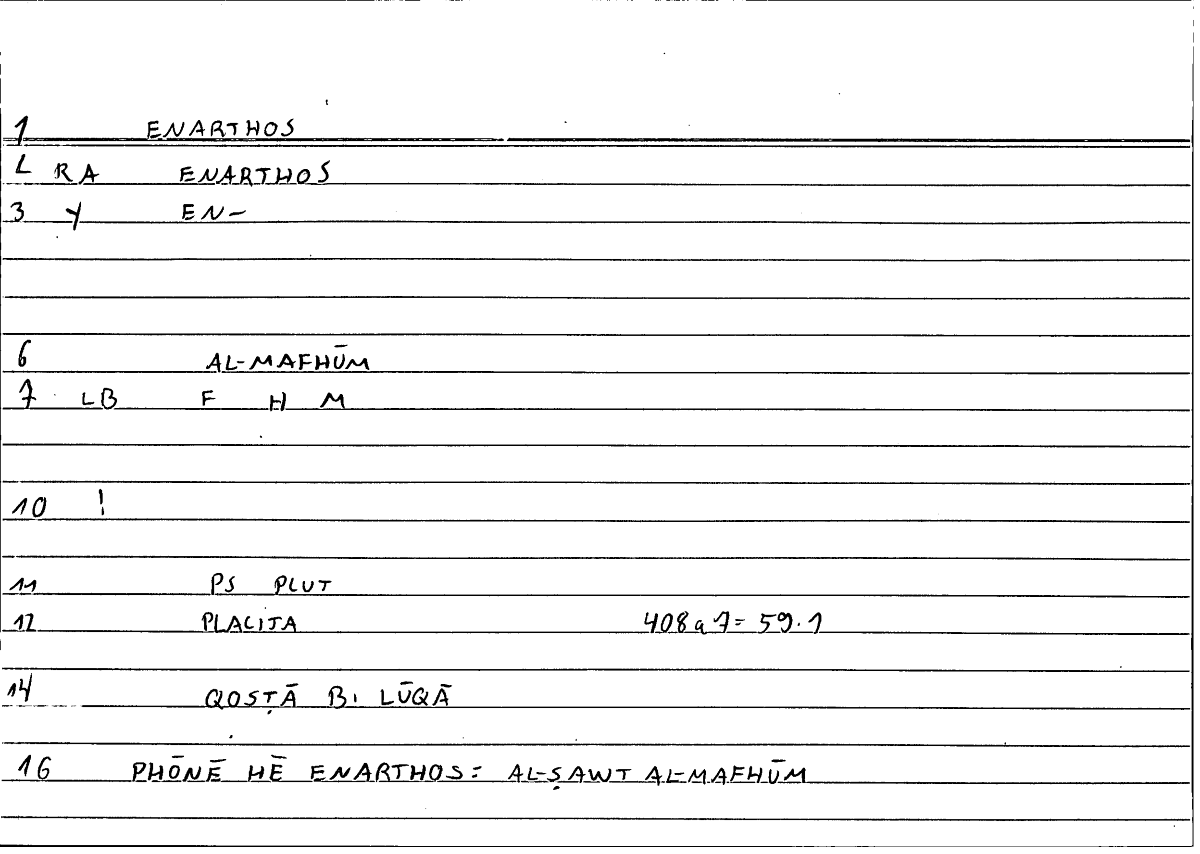 1 ENARTHOS
L RA ENARTHOS
3 Y EN-
6 AL-MAFHŪM
7 LB F H M
10 !
11 PS PLUT
12 PLACITA 408a7= 59.1
14 QOSṬĀ B. LŪQĀ
16 PHŌNĒ HĒ ENARTHOS: AL-ṢAWT AL-MAFHŪM